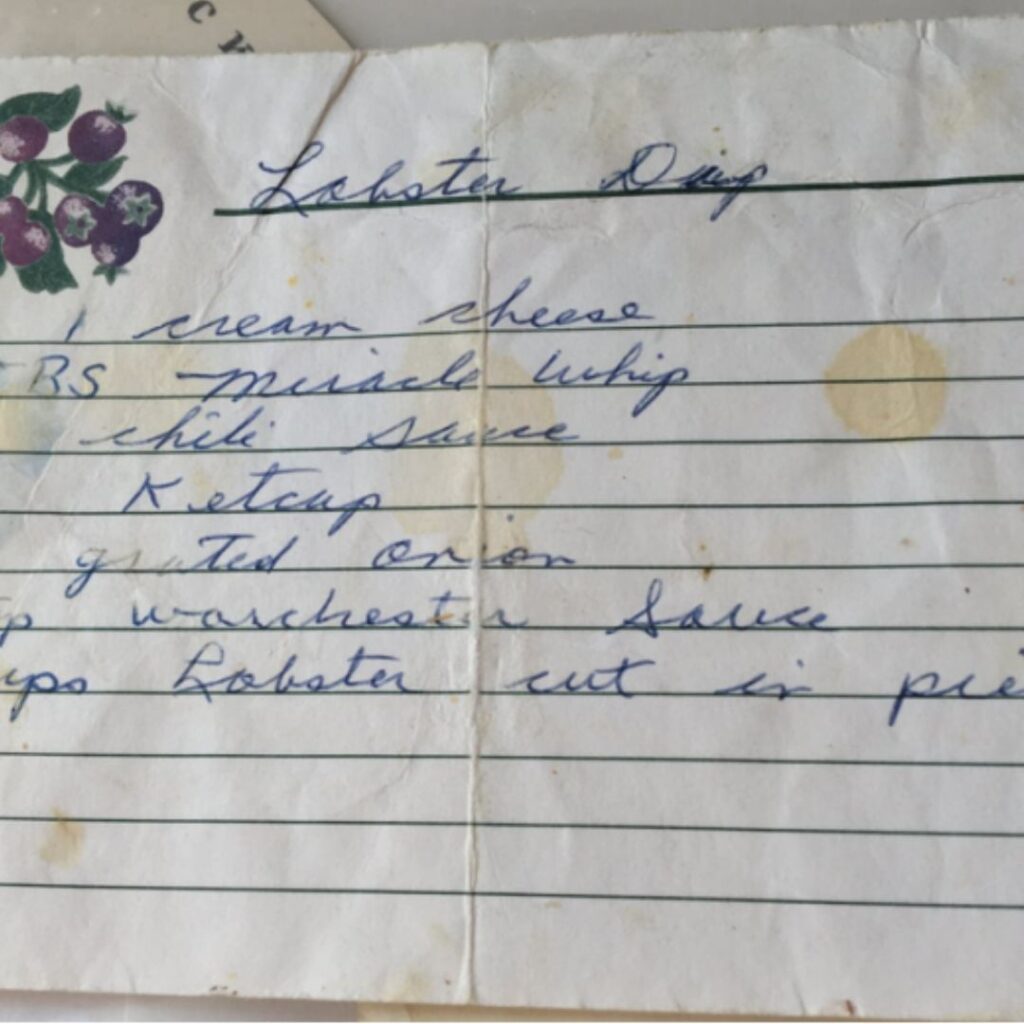 C K
Lobster Dip
1 cream cheese
BS Miracle Whip
chili sauce
Ketcup
grated onion
p warchester Sauce
ups Lobster cut in pie